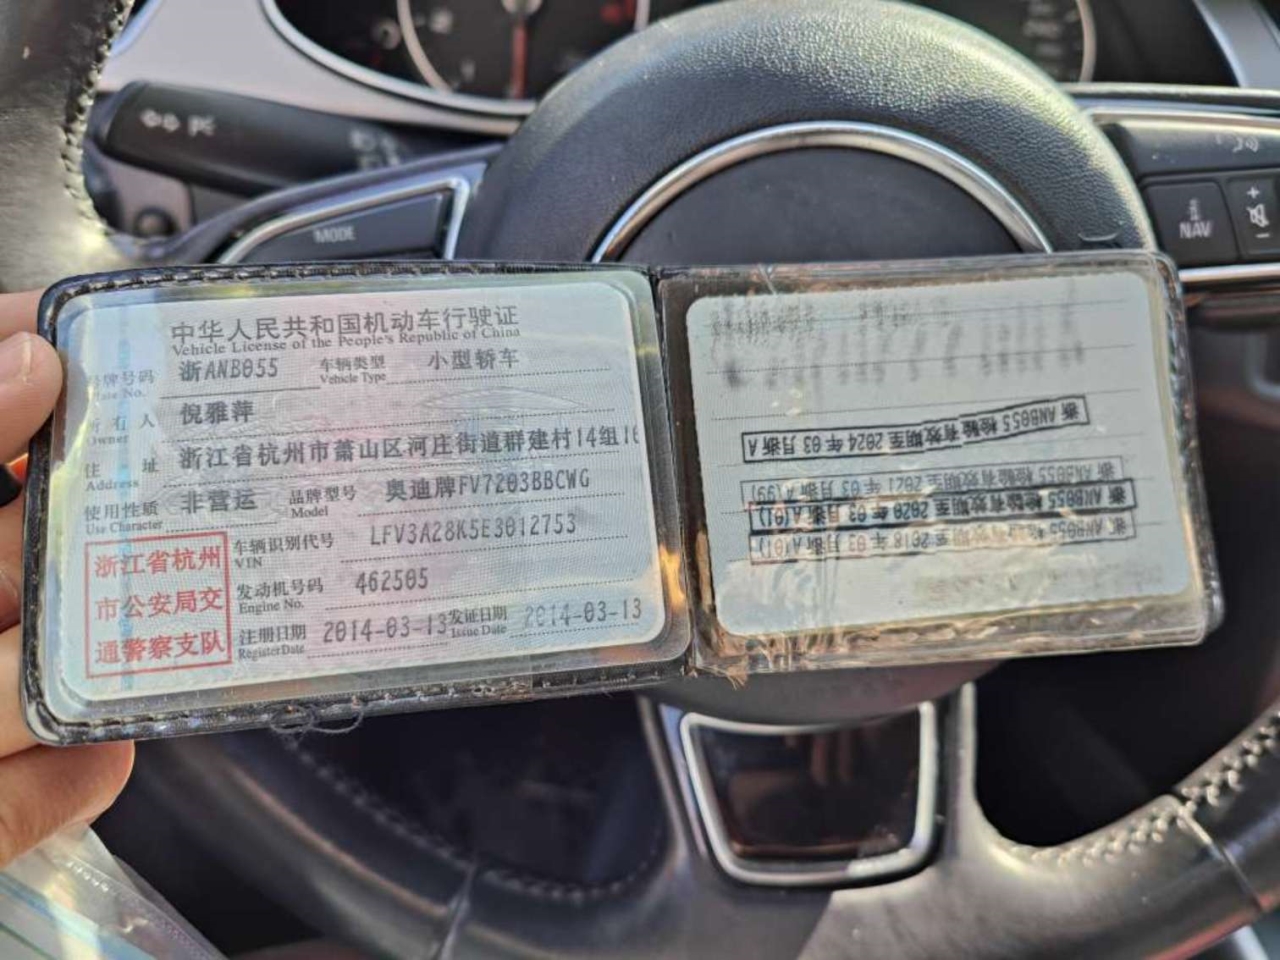 MODE
NAV
中华人民共和国机动车行驶证
Vehicle License of the People's Republic of China
号牌号码 浙ANB055 车辆类型 小型轿车
Plate No. Vehicle Type
所有人 倪雅萍
Owner
住址 浙江省杭州市萧山区河庄街道群建村14组16
Address
使用性质 非营运 品牌型号 奥迪牌FV7203BBCWG
Use Character Model
浙江省杭州
市公安局交
通警察支队
车辆识别代号 LFV3A28K5E3012753
VIN
发动机号码 462505
Engine No.
注册日期 2014-03-13 发证日期 2014-03-13
Register Date Issue Date
浙ANB055 检验有效期至 2024年03月浙A
浙ANB055 检验有效期至 2021年03月浙A(99)
浙ANB055 检验有效期至 2020年03月浙A(01)
浙ANB055 检验有效期至 2018年03月浙A(01)